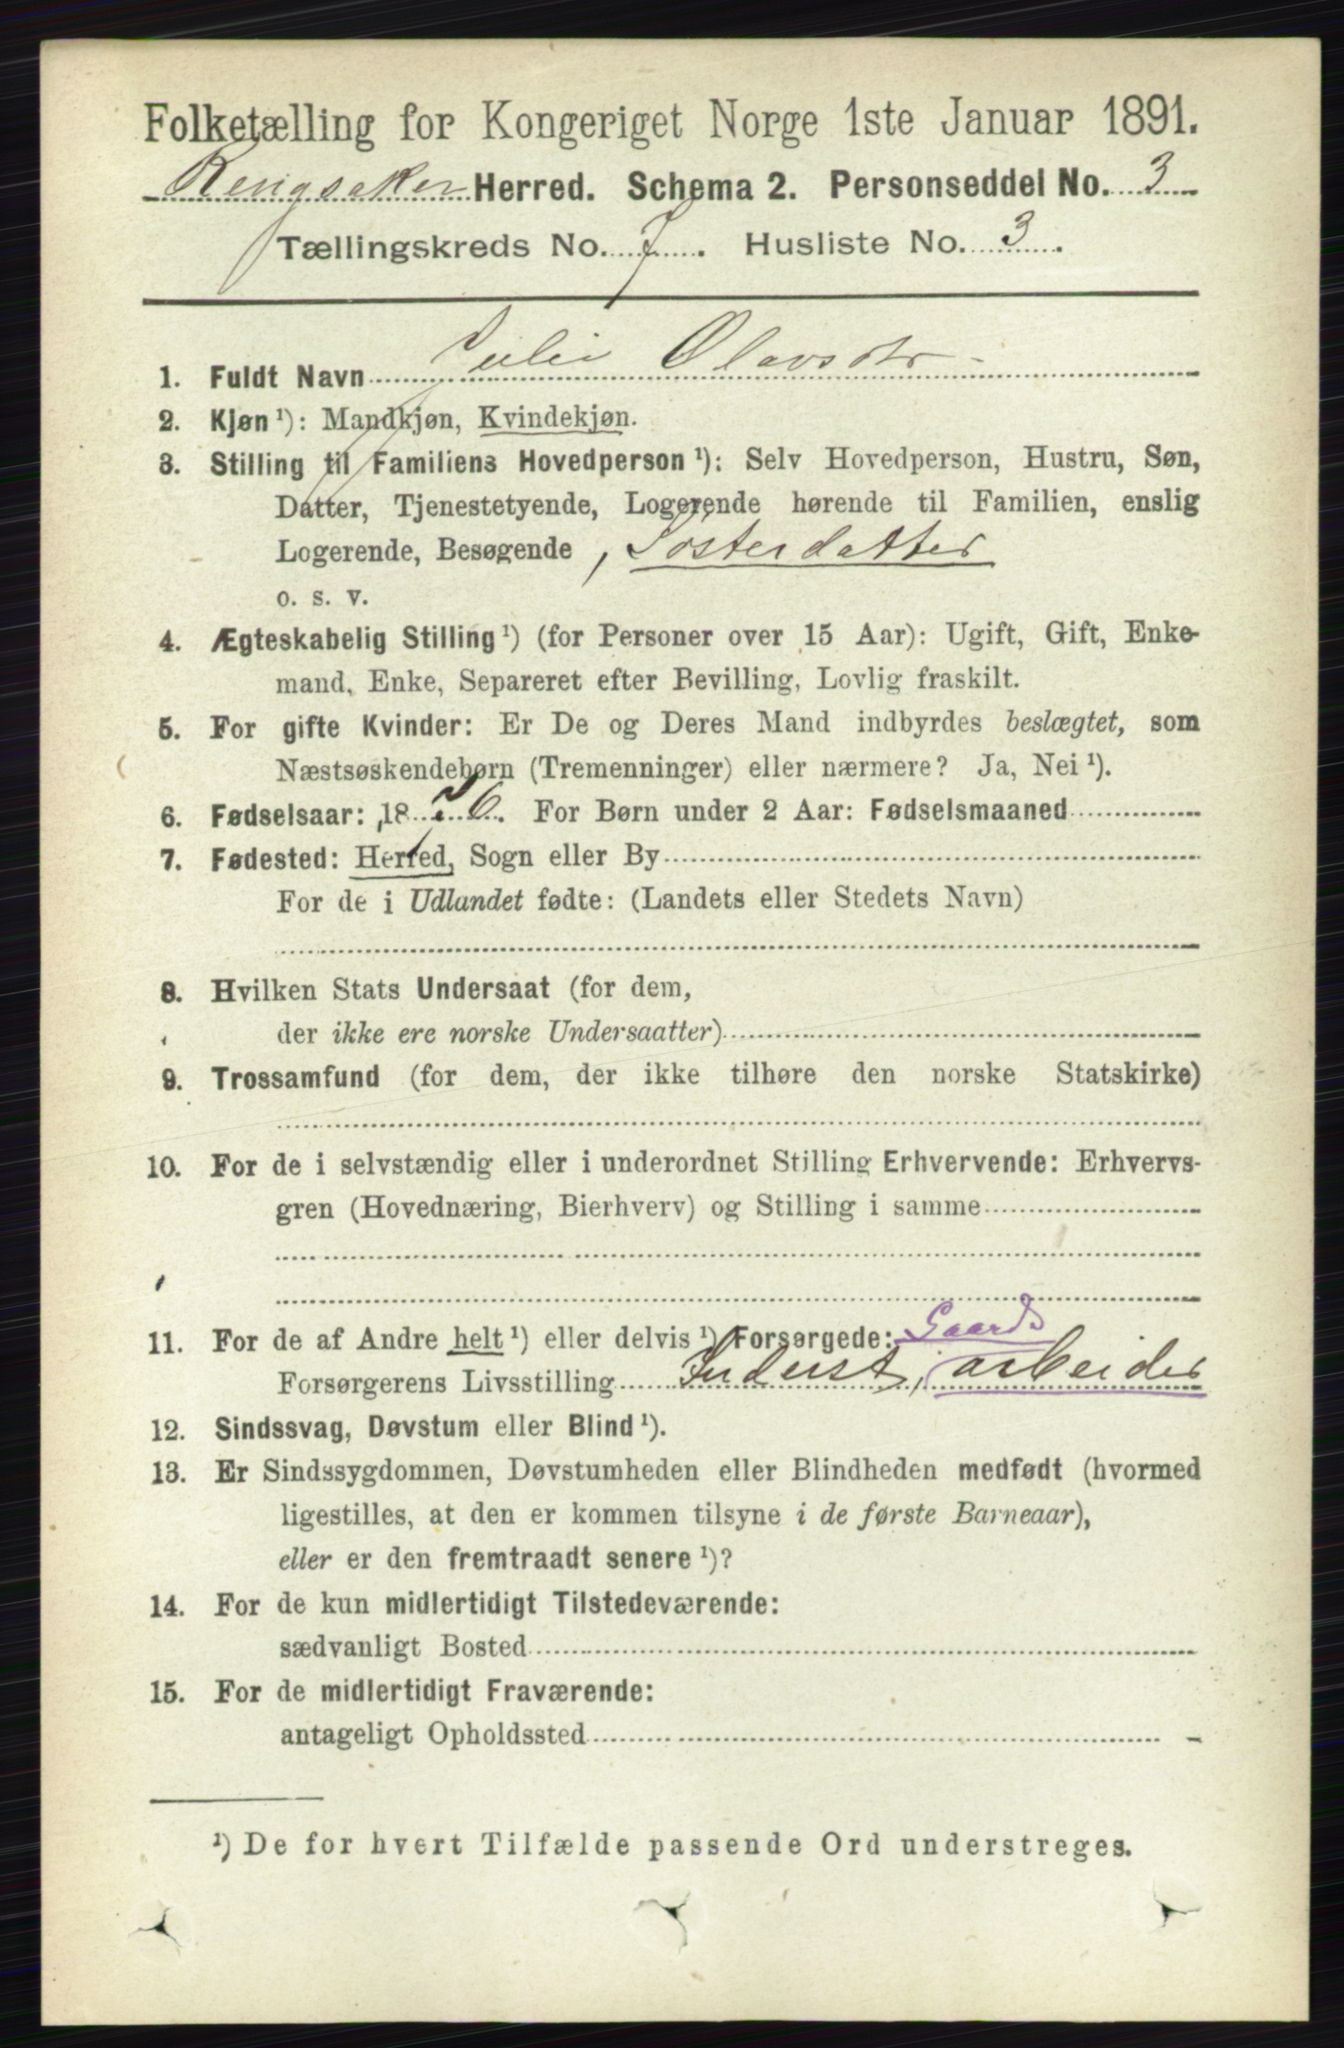 Folketælling for Kongeriget Norge 1ste Januar 1891.
Ringsaker Herred. Schema 2. Personseddel No. 3
Tællingskreds No. 7. Husliste No. 3.
1. Fuldt Navn Julie Olavsdtr
2. Kjøn ¹): Mandkjøn, Kvindekjøn.
3. Stilling til Familiens Hovedperson ¹): Selv Hovedperson, Hustru, Søn,
Datter, Tjenestetyende, Logerende hørende til Familien, enslig
Logerende, Besøgende , Søsterdatter
o. s. v.
4. Ægteskabelig Stilling ¹) (for Personer over 15 Aar): Ugift, Gift, Enke-
mand, Enke, Separeret efter Bevilling, Lovlig fraskilt.
5. For gifte Kvinder: Er De og Deres Mand indbyrdes beslægtet, som
Næstsøskendebørn (Tremenninger) eller nærmere? Ja, Nei ¹).
6. Fødselsaar: 1876. For Børn under 2 Aar: Fødselsmaaned
7. Fødested: Herred, Sogn eller By
For de i Udlandet fødte: (Landets eller Stedets Navn)
8. Hvilken Stats Undersaat (for dem,
der ikke ere norske Undersaatter)
9. Trossamfund (for dem, der ikke tilhøre den norske Statskirke)
10. For de i selvstændig eller i underordnet Stilling Erhvervende: Erhvervs-
gren (Hovednæring, Bierhverv) og Stilling i samme
11. For de af Andre helt ¹) eller delvis ¹) Forsørgede: Gaards
Forsørgerens Livsstilling Inderst, arbeider
12. Sindssvag, Døvstum eller Blind ¹).
13. Er Sindssygdommen, Døvstumheden eller Blindheden medfødt (hvormed
ligestilles, at den er kommen tilsyne i de første Barneaar),
eller er den fremtraadt senere ¹)?
14. For de kun midlertidigt Tilstedeværende:
sædvanligt Bosted
15. For de midlertidigt Fraværende:
antageligt Opholdssted
¹) De for hvert Tilfælde passende Ord understreges.